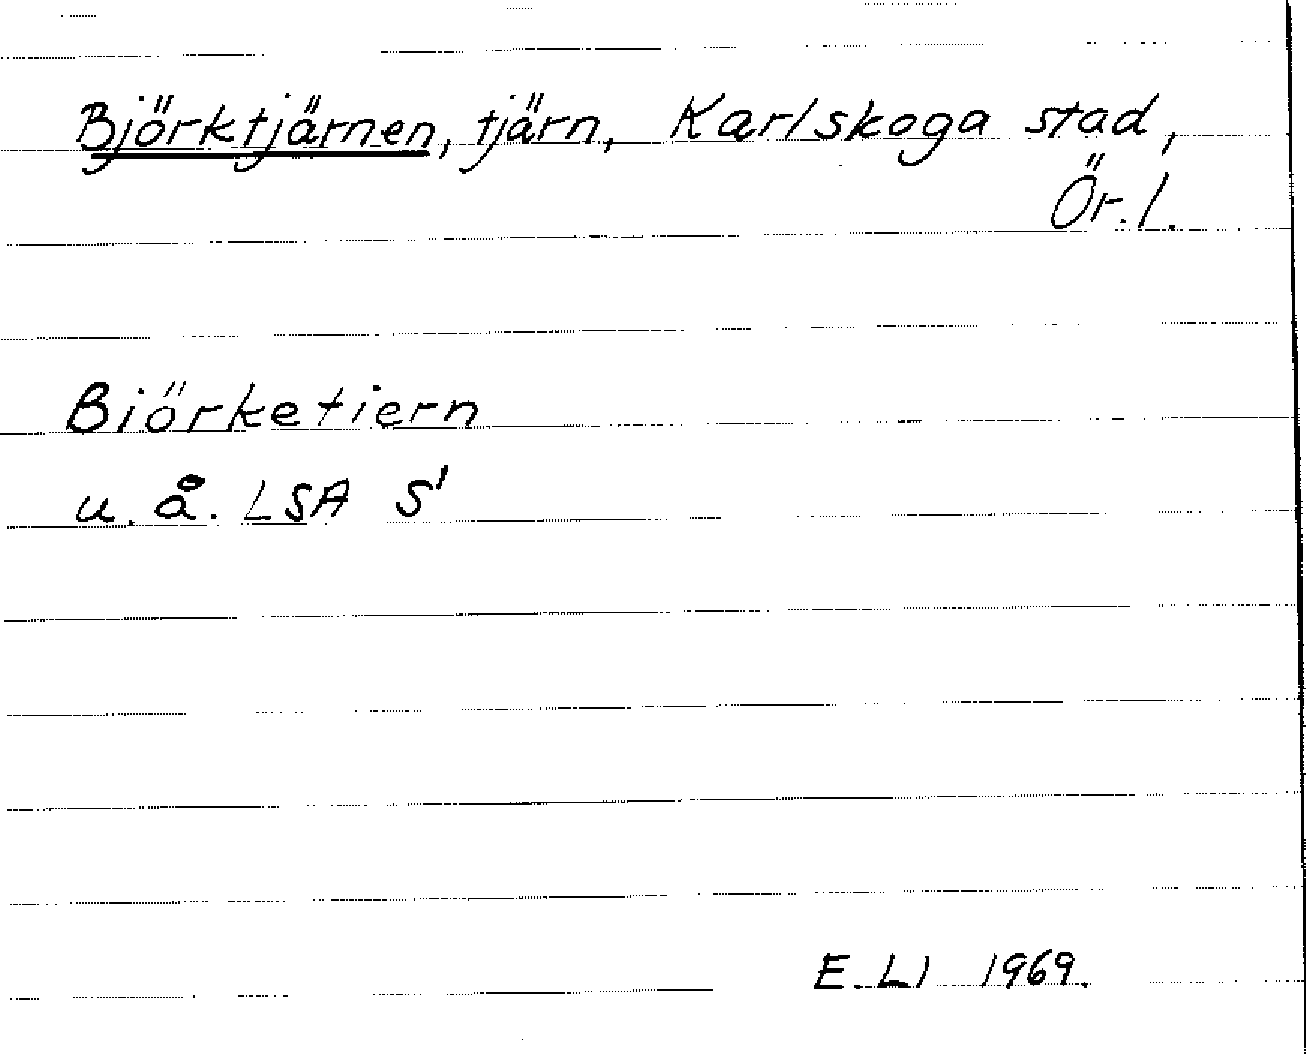 Björktjärnen, tjärn, Karlskoga stad,
Ör. l.
Biörketiern
u. å. LSA S'
E. LI 1969.